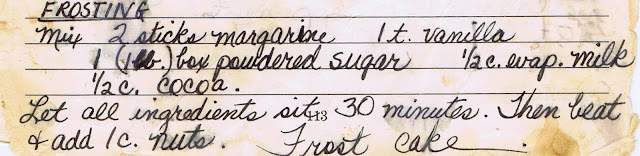 FROSTING
Mix 2 sticks margarine 1 t. vanilla
1 (1 lb.) box powdered sugar 1/2 c. evap. milk
1/2 c. cocoa.
Let all ingredients sit 30 minutes. Then beat
113
& add 1 c. nuts. Frost cake.